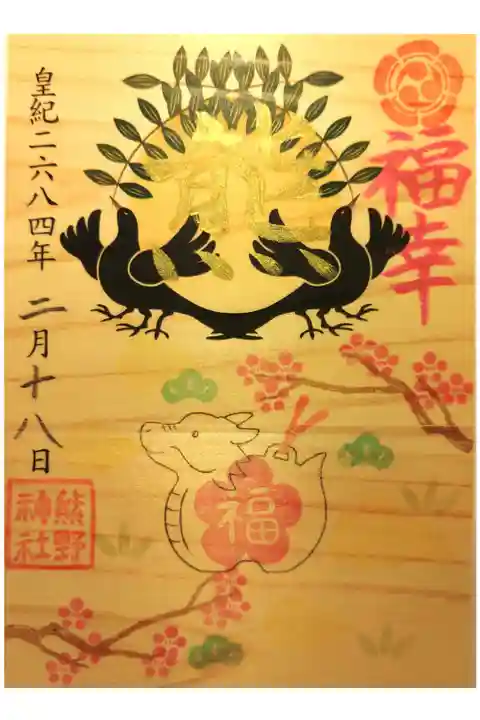 福幸
福
皇紀二六八四年 二月十八日
熊野
神社